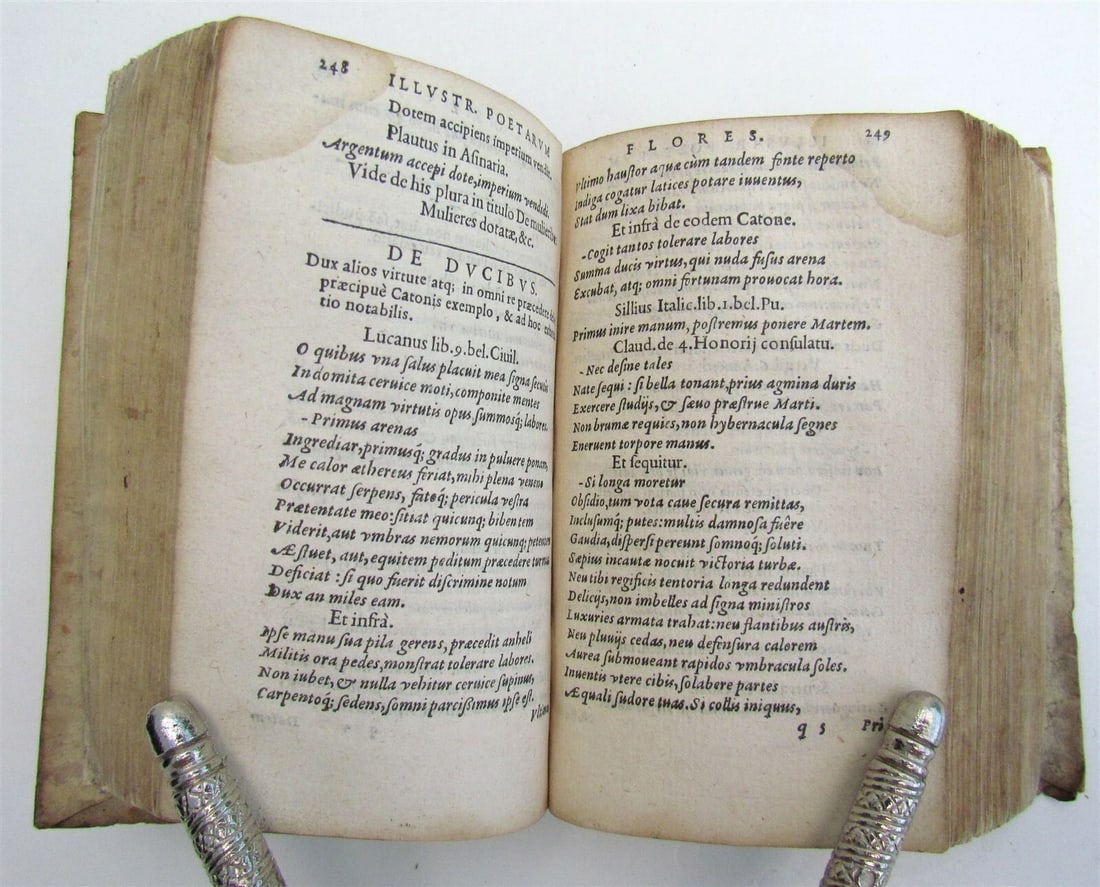 248
ILLVSTR. POETARVM
Dotem accipiens imperium vendit.
Plautus in Asinaria.
Argentum accepi dote, imperium vendidi.
Vide de his plura in titulo De mulieribus
Mulieres dotatæ, &c.
DE DVCIBVS.
Dux alios virtute atq; in omni re præcedere
præcipuè Catonis exemplo, & ad hoc
tio notabilis.
Lucanus lib.9.bel.Ciuil.
O quibus vna salus placuit mea signa secutis
Indomita ceruice mori, componite mentes
Ad magnam virtutis opus, summosq; labores.
- Primus arenas
Ingrediar, primusq; gradus in puluere ponam,
Me calor æthereus feriat, mihi plena veneno
Occurrat serpens, fatoq; pericula vestra
Prætentate meo: sitiat quicunq; bibentem
Viderit, aut vmbras nemorum quicunq; petentem
Æstuet, aut, equitem peditum præcedere turmas
Deficiat : si quo fuerit discrimine notum
Dux an miles eam.
Et infrà.
Ipse manu sua pila gerens, præcedit anheli
Militis ora pedes, monstrat tolerare labores,
Non iubet, & nulla vehitur ceruice supinus,
Carpentoq; sedens, somni parcissimus ipse est.
Vltimo
FLORES.
249
Vltimo haustor aquæ cùm tandem fonte reperto
Indiga cogatur latices potare iuuentus,
Stat dum lixa bibat.
Et infrà de eodem Catone.
-Cogit tantos tolerare labores
Summa ducis virtus, qui nuda fusus arena
Excubat, atq; omni fortunam prouocat hora.
Sillius Italic.lib.1.bel.Pu.
Primus inire manum, postremus ponere Martem.
Claud.de 4.Honorij consulatu.
- Nec desine tales
Nate sequi : si bella tonant, prius agmina duris
Exercere studijs, & sæuo præstrue Marti.
Non brumæ requies, non hybernacula segnes
Eneruent torpore manus.
Et sequitur.
- Si longa moretur
Obsidio, tum vota caue secura remittas,
Inclusumq; putes: multis damnosa fuêre
Gaudia, dispersi pereunt somnoq; soluti.
Sæpius incautæ nocuit victoria turbæ.
Neu tibi regificis tentoria longa redundent
Delicijs, non imbelles ad signa ministros
Luxuries armata trahat: neu flantibus austris,
Neu pluuijs cedas, neu defensura calorem
Aurea submoueant rapidos vmbracula soles.
Inuentis vtere cibis, solabere partes
Æquali sudore tuas. Si collis iniquus,
q 5
Pri